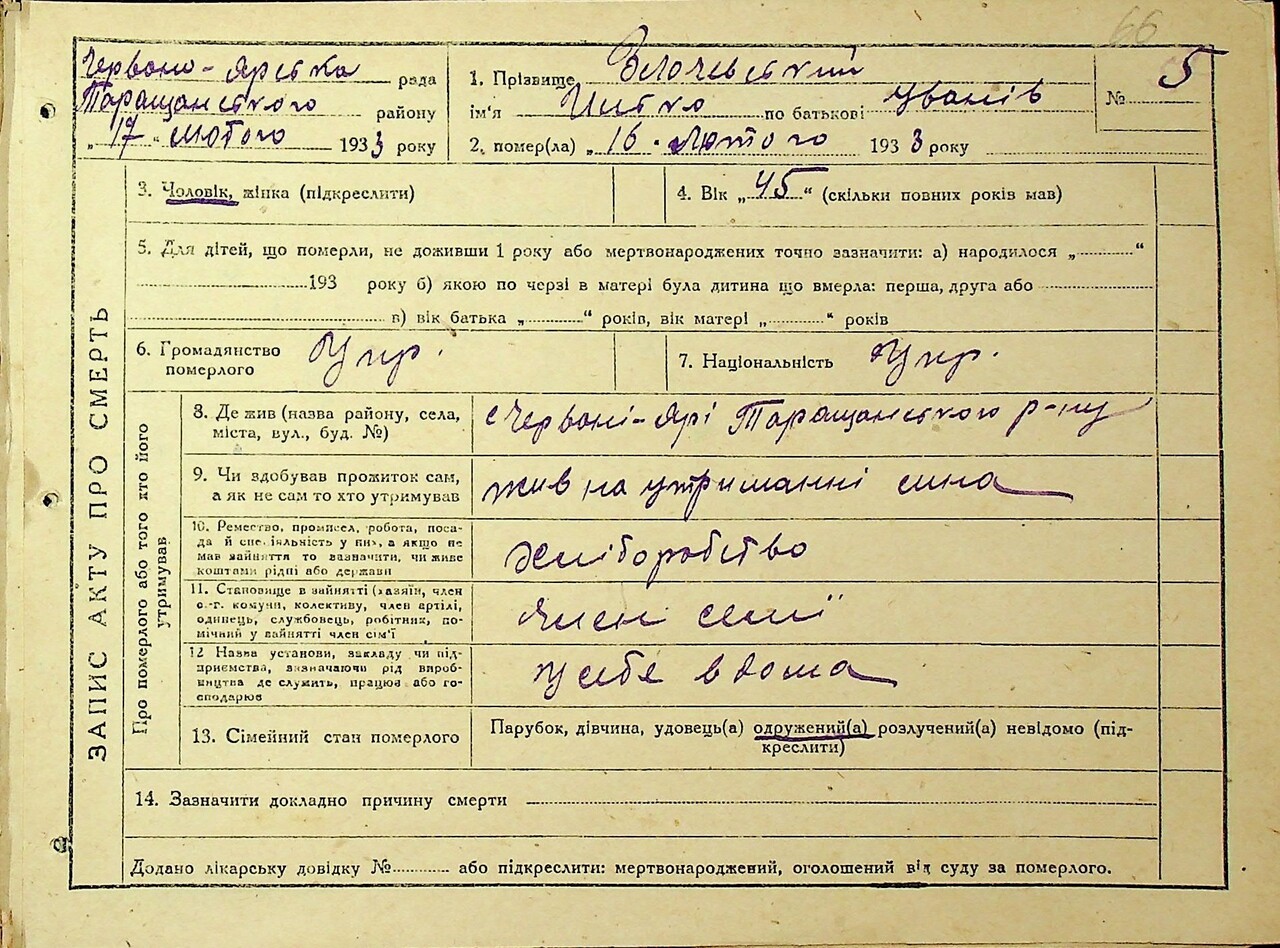 66
Червоно-Ярська рада
Таращанського району
„17“ лютого 1933 року
1. Прізвище
ім'я по батькові Іванів
2. помер(ла) „16. Лютого 1933 року
№ 5
ЗАПИС АКТУ ПРО СМЕРТЬ
3. Чоловік, жінка (підкреслити)
4. Вік „45“ (скільки повних років мав)
5. Для дітей, що померли, не доживши 1 року або мертвонароджених точно зазначити: а) народилося „..........“
193 року б) якою по черзі в матері була дитина що вмерла: перша, друга або
в) вік батька „..........“ років, вік матері „..........“ років
6. Громадянство померлого Укр.
7. Національність Укр.
Про померлого або того хто його утримував
8. Де жив (назва району, села, міста, вул., буд. №)
с Червоні-Ярі Таращанського р-ну
9. Чи здобував прожиток сам, а як не сам то хто утримував
жив на утриманні сина
10. Ремество, промисел, робота, посада й спеціяльність у них, а якщо не мав зайняття то зазначити, чи живе коштами рідні або держави
Хліборобство
11. Становище в зайнятті (хазяїн, член с.-г. комуни, колективу, член артілі, одинець, службовець, робітник, помічний у зайнятті член сім'ї
Член семї
12 Назва установи, закладу чи підприємства, визначаючи рід виробництва де служить, працює або господарює
у себе вдома
13. Сімейний стан померлого
Парубок, дівчина, удовець(а) одружений(а) розлучений(а) невідомо (підкреслити)
14. Зазначити докладно причину смерти
Додано лікарську довідку №.......... або підкреслити: мертвонароджений, оголошений від суду за померлого.